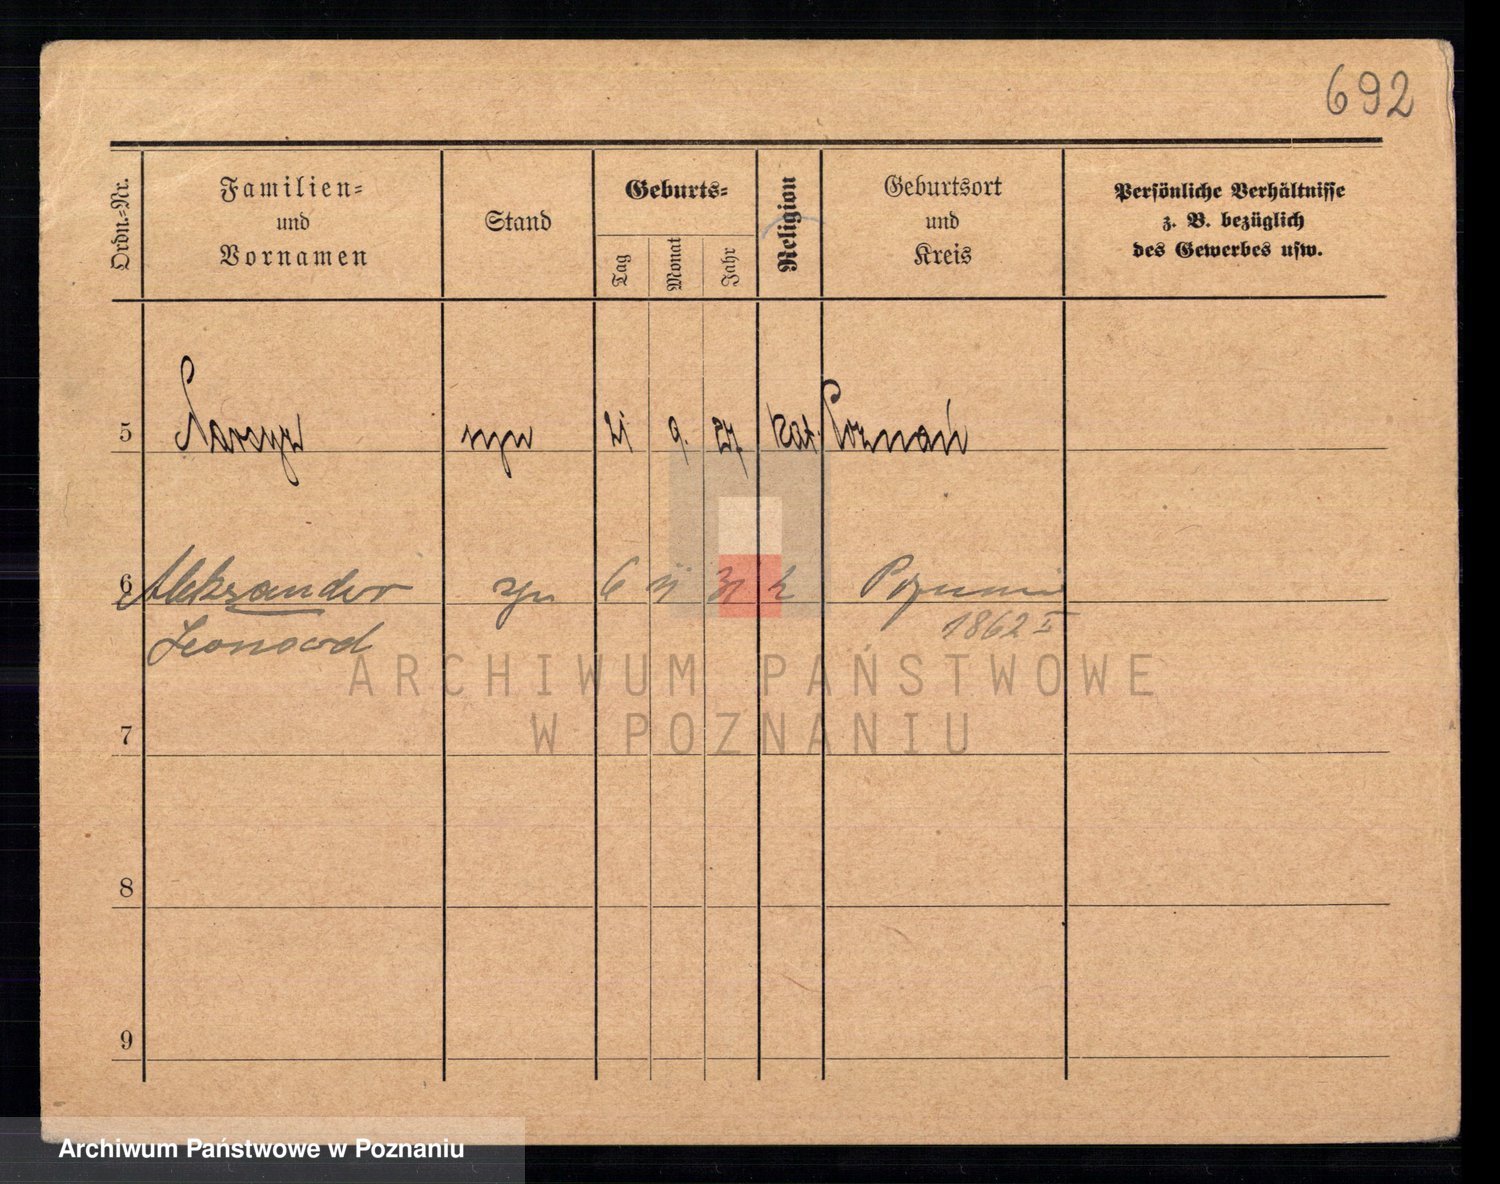 692
Ordn.=Nr.
Familien=
und
Vornamen
Stand
Geburts=
Tag
Monat
Jahr
Religion
Geburtsort
und
Kreis
Persönliche Verhältnisse
z. B. bezüglich
des Gewerbes usw.
5 Narcyz syn 21 9. 27. kat. Poznań
6 Aleksander syn 6 31 k
1862 II
Leonard
ARCHIWUM PAŃSTWOWE
W POZNANIU
7
8
9
Archiwum Państwowe w Poznaniu